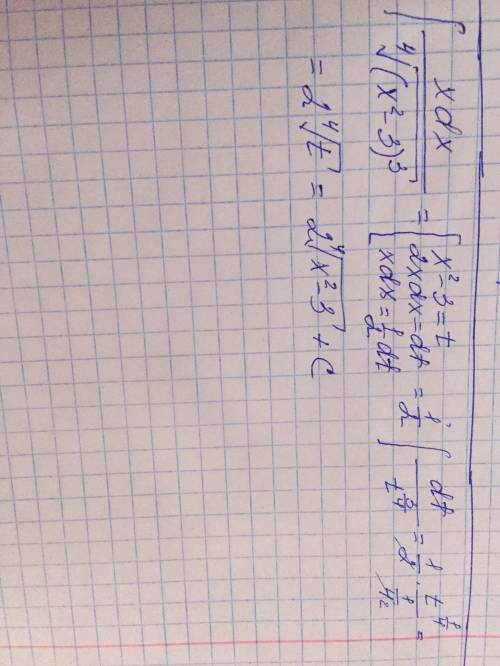 ∫ xdx / ⁴√(x²-3)³ = [ x²-3=t
2xdx=dt
xdx=½dt = ½ ∫ dt / t^(3/4) = ½ · t^(1/4) / (1/4) =
= 2⁴√t = 2⁴√x²-3 + C